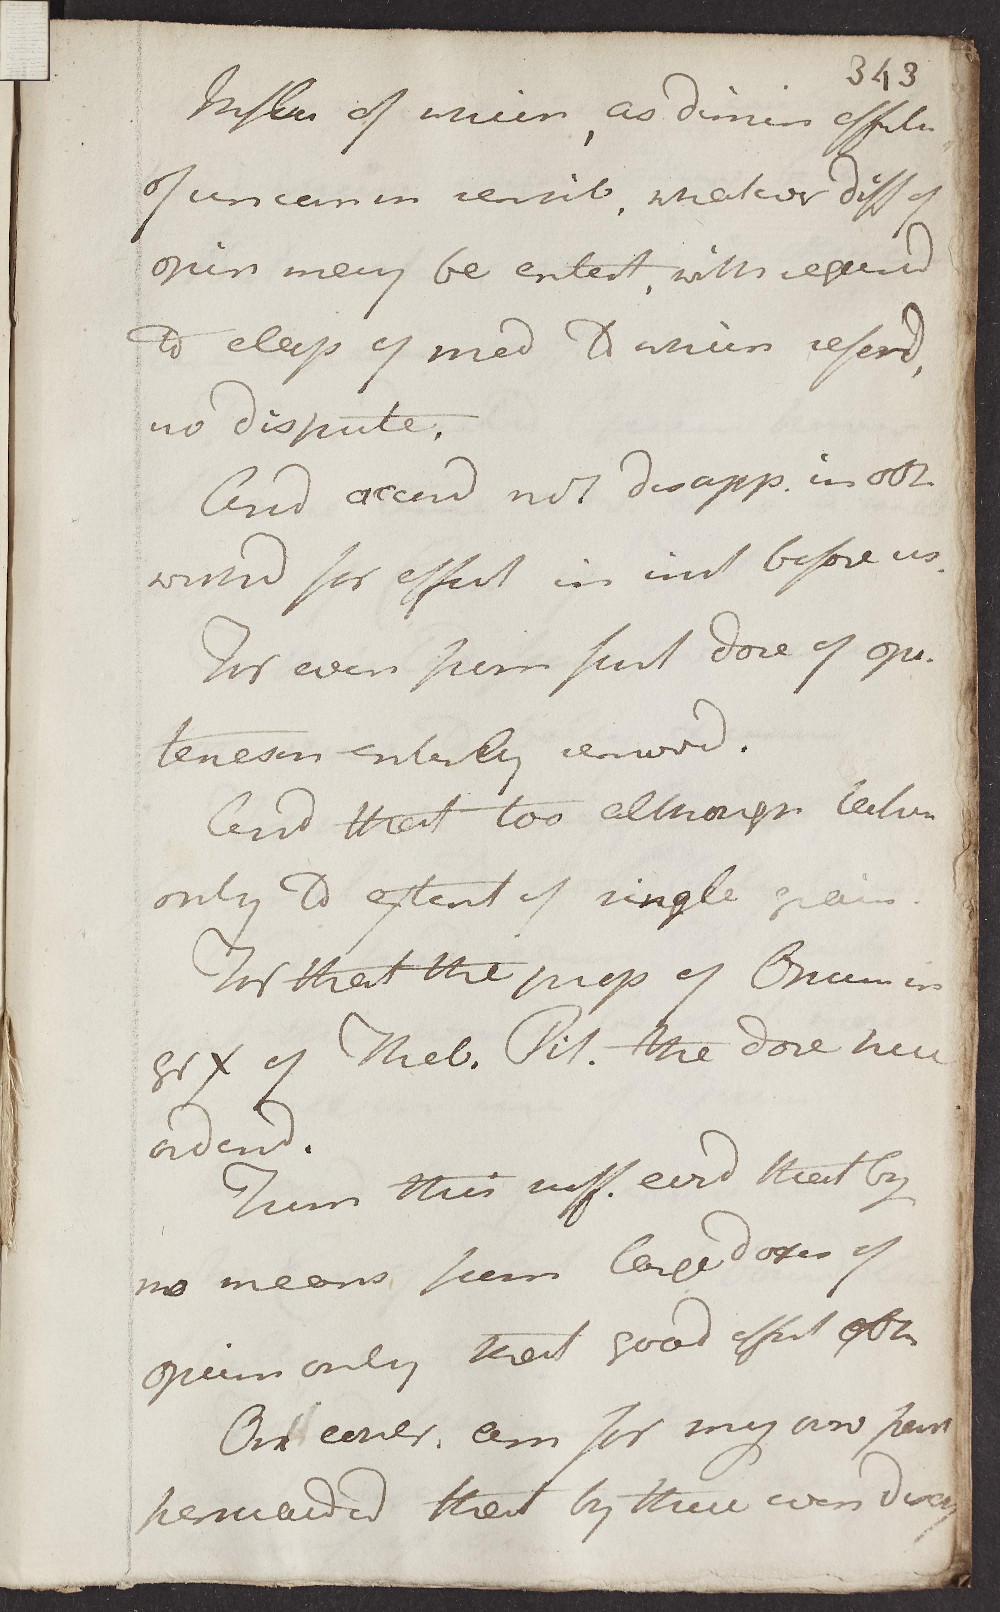 343
Influ of which, as dimin effects
of uncommon sensib, whatever diff of
opin may be entert, with regard
to class of med to which referd,
no dispute.
And accord not disapp. in obt
wishd for effect in inst before us.
For even from first dose of opi.
tenesm entirely removd.
And that too although taken
only to extent of single grain.
For that the prop of Opium in
gr x of Theb. Pil. the dose here
orderd.
From this suff. evid that by
no means from large doses of
opium only that good effect obt
On contr. am for my own part
persuaded that by these even dis